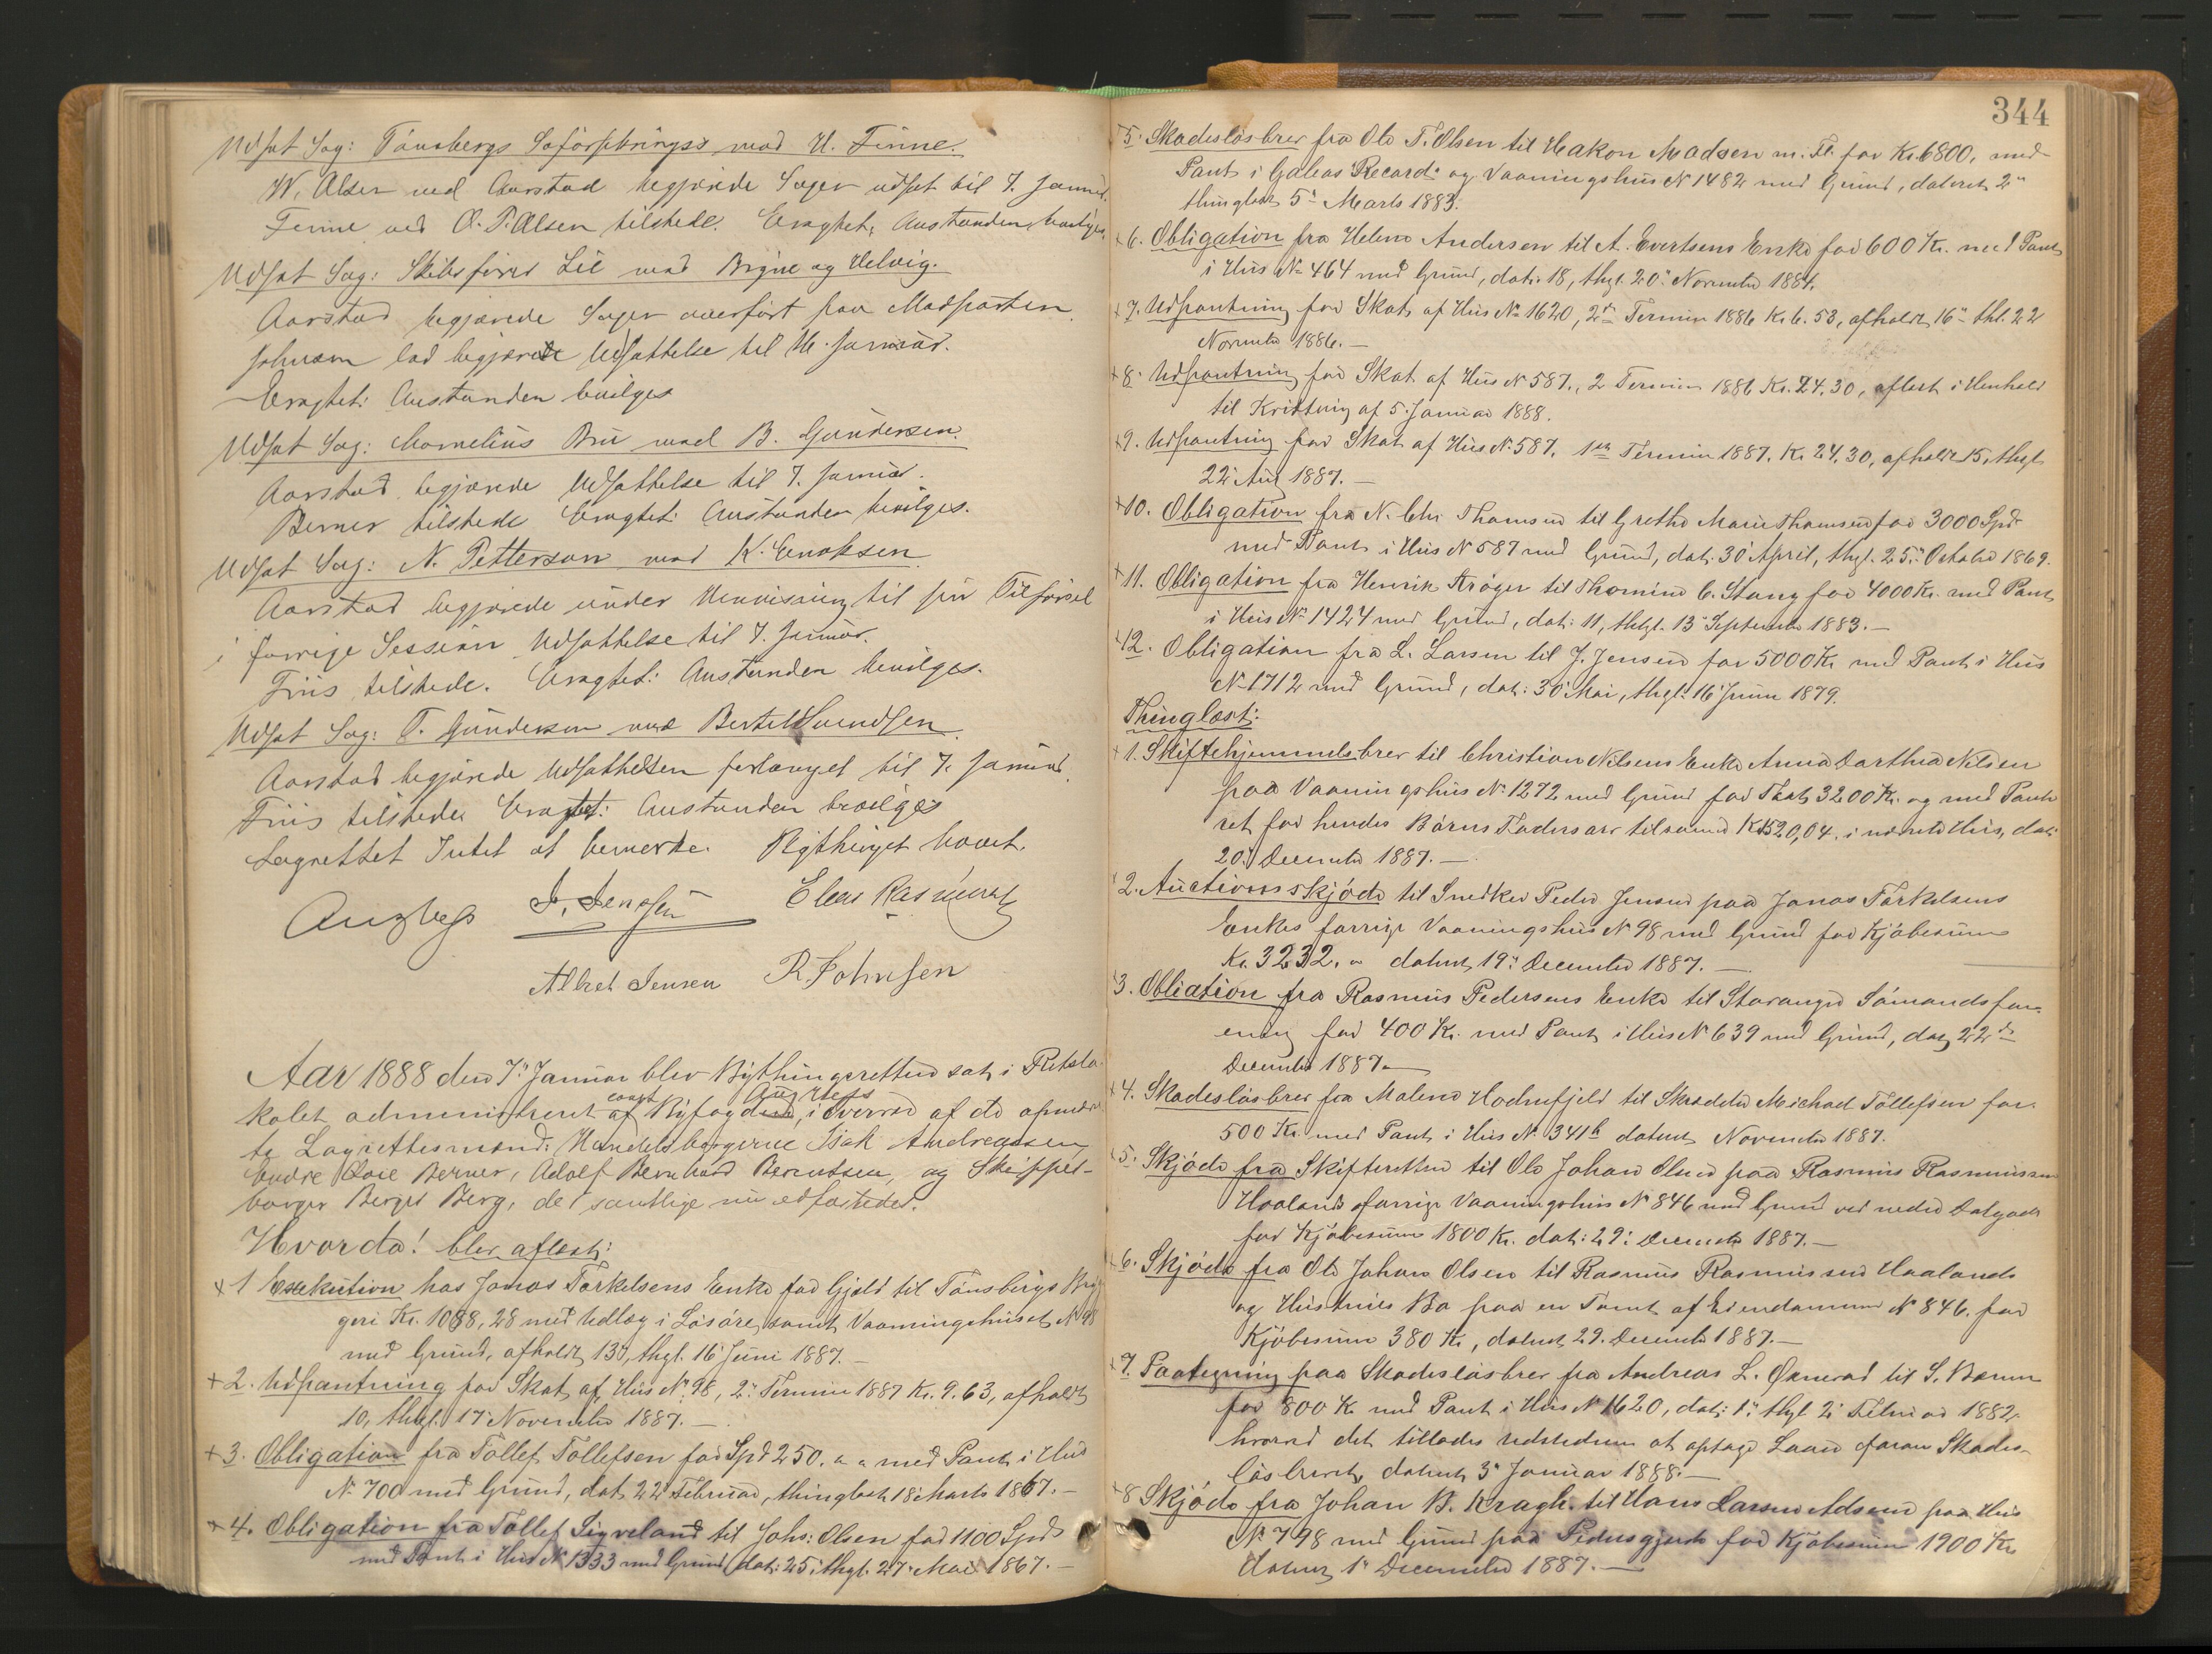 Udsat Sag: Tönsbergs Søforsikrings mod U. Finne.
W. Olsen ved Aarstad begjærede Sagen udsat til 7. Januar.
Finne ved O. P. Olsen tilstede. Eragtet: Anstanden bevilges.
Udsat Sag: Skibsfører Lie mod Brýne og Helvig.
Aarstad begjærede Sagen overført paa Modparten.
Johnsen lod begjærede Udsættelse til 14. Januar.
Eragtet: Anstanden bevilges
Udsat Sag: Cornelius Bru mod B. Gundersen.
Aarstad begjærede Udsættelse til 7. Januar.
Berner tilstede Eragtet: Anstanden bevilges.
Udsat Sag: N. Petterson mod K. Enoksen.
Aarstad begjærede under Henvisning til sin Tilførsel
i forrige Session Udsættelse til 7. Januar.
Friis tilstede. Eragtet: Anstanden bevilges.
Udsat Sag: T. Gundersen mod Bertel Svendsen.
Aarstad begjærede Udsættelsen forlænget til 7. Januar.
Friis tilstede Eragtet: Anstanden bevilges
Lagrettet Intet at bemerke. Bythinget hævet.
J. Jensen Elias Rasmussen
Albert Jensen R. Johnsen
Aar 1888 den 7: Januar blev Bythingsretten sat i Retslo-
kalet administreret af const Byfogd Aughess, i Overvær af de opnævn-
te Lagrettesmænd: Handelsborgerne Isak Andreassen
Endre Berner, Adolf Bernhard Berentsen, og Skipper-
borger Berge Berg, de samtlige nu edfæstedes.
Hvorda! blev aflæst:
+ 1 Exekution hos Jonas Törkelsens Enke for Gjeld til Tönsbergs Bryg-
geri Kr. 1088,28 med Udlæg i Løsøre, samt Vaaningshuset N. 98
med Grund, afholdt 13, thgl. 16 Juni 1887.—
+ 2. Udpantning for Skat af Hus N. 98, 2: Termin 1887 Kr. 9.63, afholdt
10, thgl. 17 November 1887.—
+ 3. Obligation fra Tollef Tollefsen for Spd 250. " " med Pant i Hus
N. 700 med Grund, dat. 22 Februar, thinglæst 18 Marts 1867.—
+ 4. Obligation fra Tollef Sigveland til Johs: Olsen for 1100 Spd
med Pant i Hus N. 1333 med Grund dat: 25, thgl. 27. Mai 1867.—
344
+ 5. Skadesløsbrev fra Ole T. Olsen til Hakon Madsen m. Fl. for Kr. 6800, med
Pant i Galeas "Record" og Vaaningshus N. 1482 med Grund, dateret 2"
thinglæst 5" Marts 1883.
+ 6. Obligation fra Helene Andersen til A. Evertsens Enke for 600 Kr. med Pant
i Hus No 464 med Grund, dat: 18, thgl. 20: November 1884.
+ 7. Udpantning for Skat af Hus No 1620, 2den Termin 1886 Kr. 6.53, afholdt 16" thl. 22
November 1886.—
+ 8. Udpantning for Skat af Hus N. 587, 2 Termin 1886 Kr. 24.30, aflæst i Henhold
til Kvittering af 5. Januar 1888.
+ 9. Udpantning for Skat af Hus N. 587. 1ste Termin 1887. Kr. 24.30, afholdt 15, thgl
22 Aug 1887.—
+ 10. Obligation fra N. Chr. Thomsen til Grethe Marie Thomsen for 3000 Spd
med Pant i Hus N 587 med Grund, dat: 30 April, thgl. 25: October 1869.
+ 11. Obligation fra Henrik Krøger til Thomine C. Stang for 4000 Kr. med Pant
i Hus N. 1424 med Grund, dat: 11, thgl. 13" September 1883.—
+ 12. Obligation fra L. Larsen til J. Jensen for 5000 Kr med Pant i Hus
N. 1712 med Grund, dat: 30 Mai, thgl. 16 Juni 1879.
Thinglæst:
+ 1. Skiftehjemmelsbrev til Christian Nilsens Enke Anna Darthea Nilsen
paa Vaaningshus N. 1272 med Grund for Taxt 3200 Kr. og med Pante-
ret for hendes Børns Fadersarv tilsammen Kr 1520,04. i nævnte Hus, dat:
20: December 1887.—
+ 2. Auctionsskjøde til Snedker Peder Jensen paa Jonas Törkelsens
Enkes forrige Vaaningshus N. 98 med Grund for Kjøbesum
Kr. 3232. " dateret 19: December 1887.—
+ 3. Obliation fra Rasmus Pedersens Enke til Stavanger Sømandsfor-
ening for 400 Kr. med Pant i Hus N. 639 med Grund, dat. 22de
December 1887.—
+ 4. Skadesløsbrev fra Malene Hodnefjeld til Skrædder Michael Tollefsen for
500 Kr. med Pant i Hus N. 341b dateret November 1887.
+ 5. Skjøde fra Skifteretten til Ole Johan Olsen paa Rasmus Rasmussen
Haalands forrige Vaaningshus N 846 med Grund ved nedre Dalgade
for Kjøbesum 1800 Kr. dat: 29: December 1887.—
+ 6. Skjøde fra Ole Johan Olsen til Rasmus Rasmussen Haaland
og Hustrues Bo paa en Tomt af Eiendommen N 846. for
Kjøbesum 380 Kr, dateret 29. December 1887.—
+ 7. Paategning paa Skadesløsbrev fra Andreas L. til S. Berner
for 800 Kr med Pant i Hus N 1620, dat: 1: thgl 2: Februar 1882,
hvorved det tillades Udstederen at optage Laan foran Skades-
løsbrevet, dateret 3" Januar 1888.—
+ 8 Skjøde fra Johan B. Kragh til Hans Larsen Adsen paa Hus
N. 798 med Grund paa Pedersgjerde for Kjøbesum 1900 Kr
Dateret 1" December 1887.—